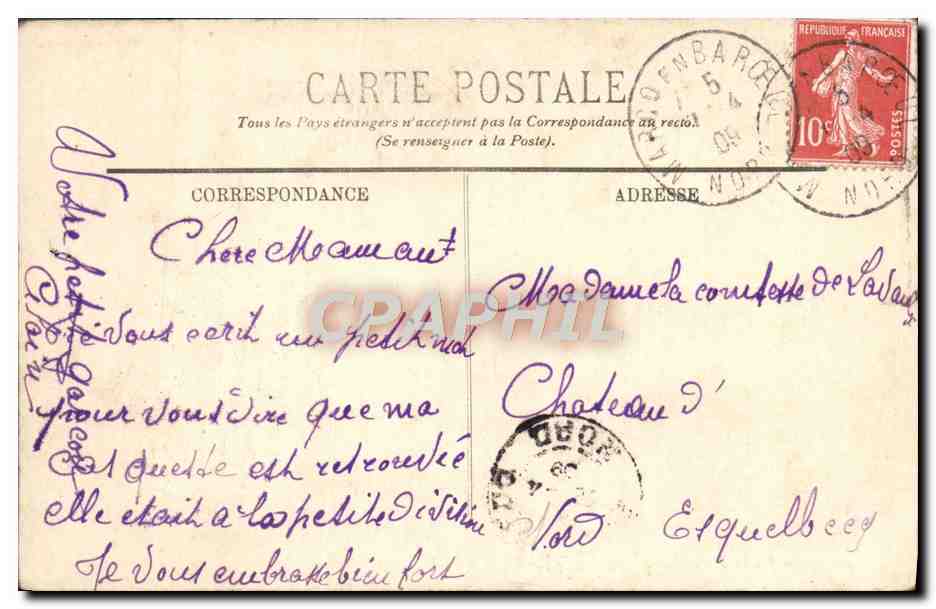 CARTE POSTALE
Tous les Pays étrangers n'acceptent pas la Correspondance au recto.
(Se renseigner à la Poste).
CORRESPONDANCE
ADRESSE
REPUBLIQUE FRANÇAISE
10c
POSTES
MARCQ EN BAROEUL
5
4
09
NORD
Chere Mamant
je vous ecrit un petit mot
pour vous dire que ma
Casquette est retrouvée
elle était a la petite division
Je vous embrasse bien fort
Votre petit garcon
Alain
Madame la comtesse de
Chateau d'
Esquelbecq
Nord
NORD
CPAPHIL